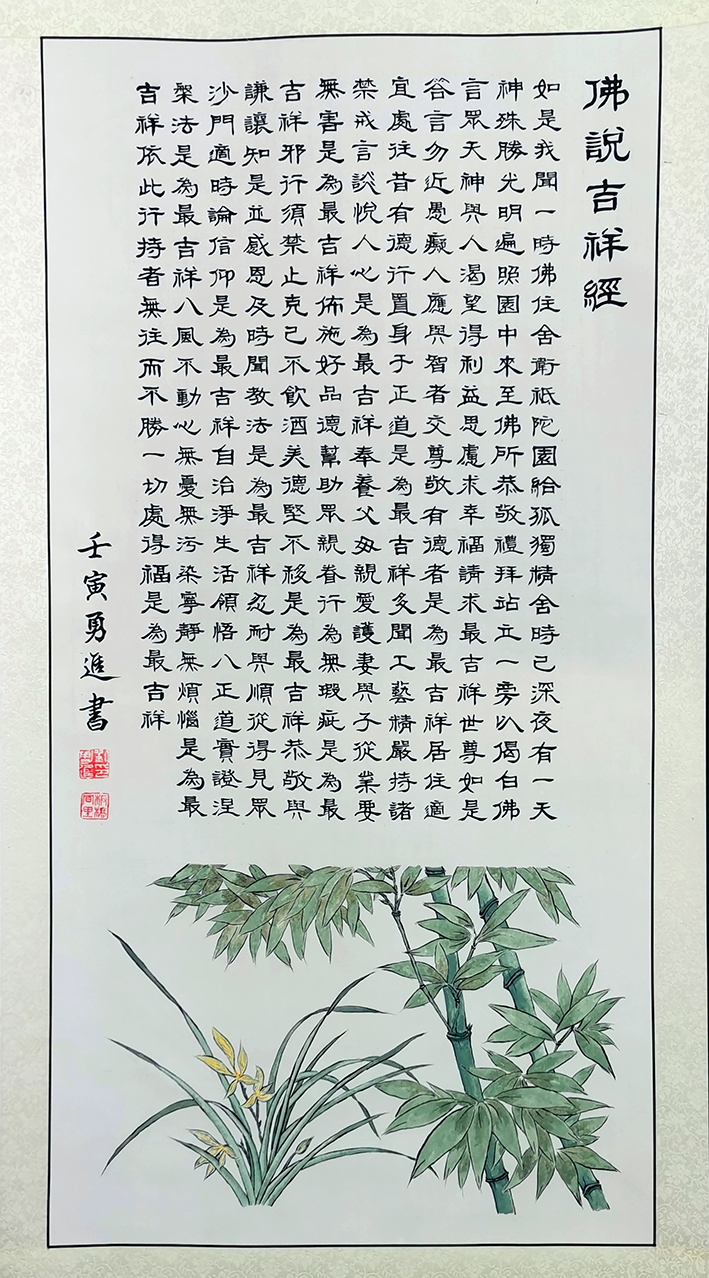 佛說吉祥經
如是我聞一時佛住舍衛祗陀園給孤獨精舍時已深夜有一天
神殊勝光明遍照園中來至佛所恭敬禮拜站立一旁以偈白佛
言眾天神與人渴望得利益思慮求幸福請求最吉祥世尊如是
答言勿近愚癡人應與智者交尊敬有德者是為最吉祥居住適
宜處往昔有德行置身于正道是為最吉祥多聞工藝精嚴持諸
禁戒言談悅人心是為最吉祥奉養父母親愛護妻與子從業要
無害是為最吉祥佈施好品德幫助眾親眷行為無瑕疵是為最
吉祥邪行須禁止克己不飲酒美德堅不移是為最吉祥恭敬與
謙讓知是並感恩及時聞教法是為最吉祥忍耐與順從得見眾
沙門適時論信仰是為最吉祥自治淨生活領悟八正道實證涅
槃法是為最吉祥八風不動心無憂無污染寧靜無煩惱是為最
吉祥依此行持者無往而不勝一切處得福是為最吉祥
壬寅勇進書